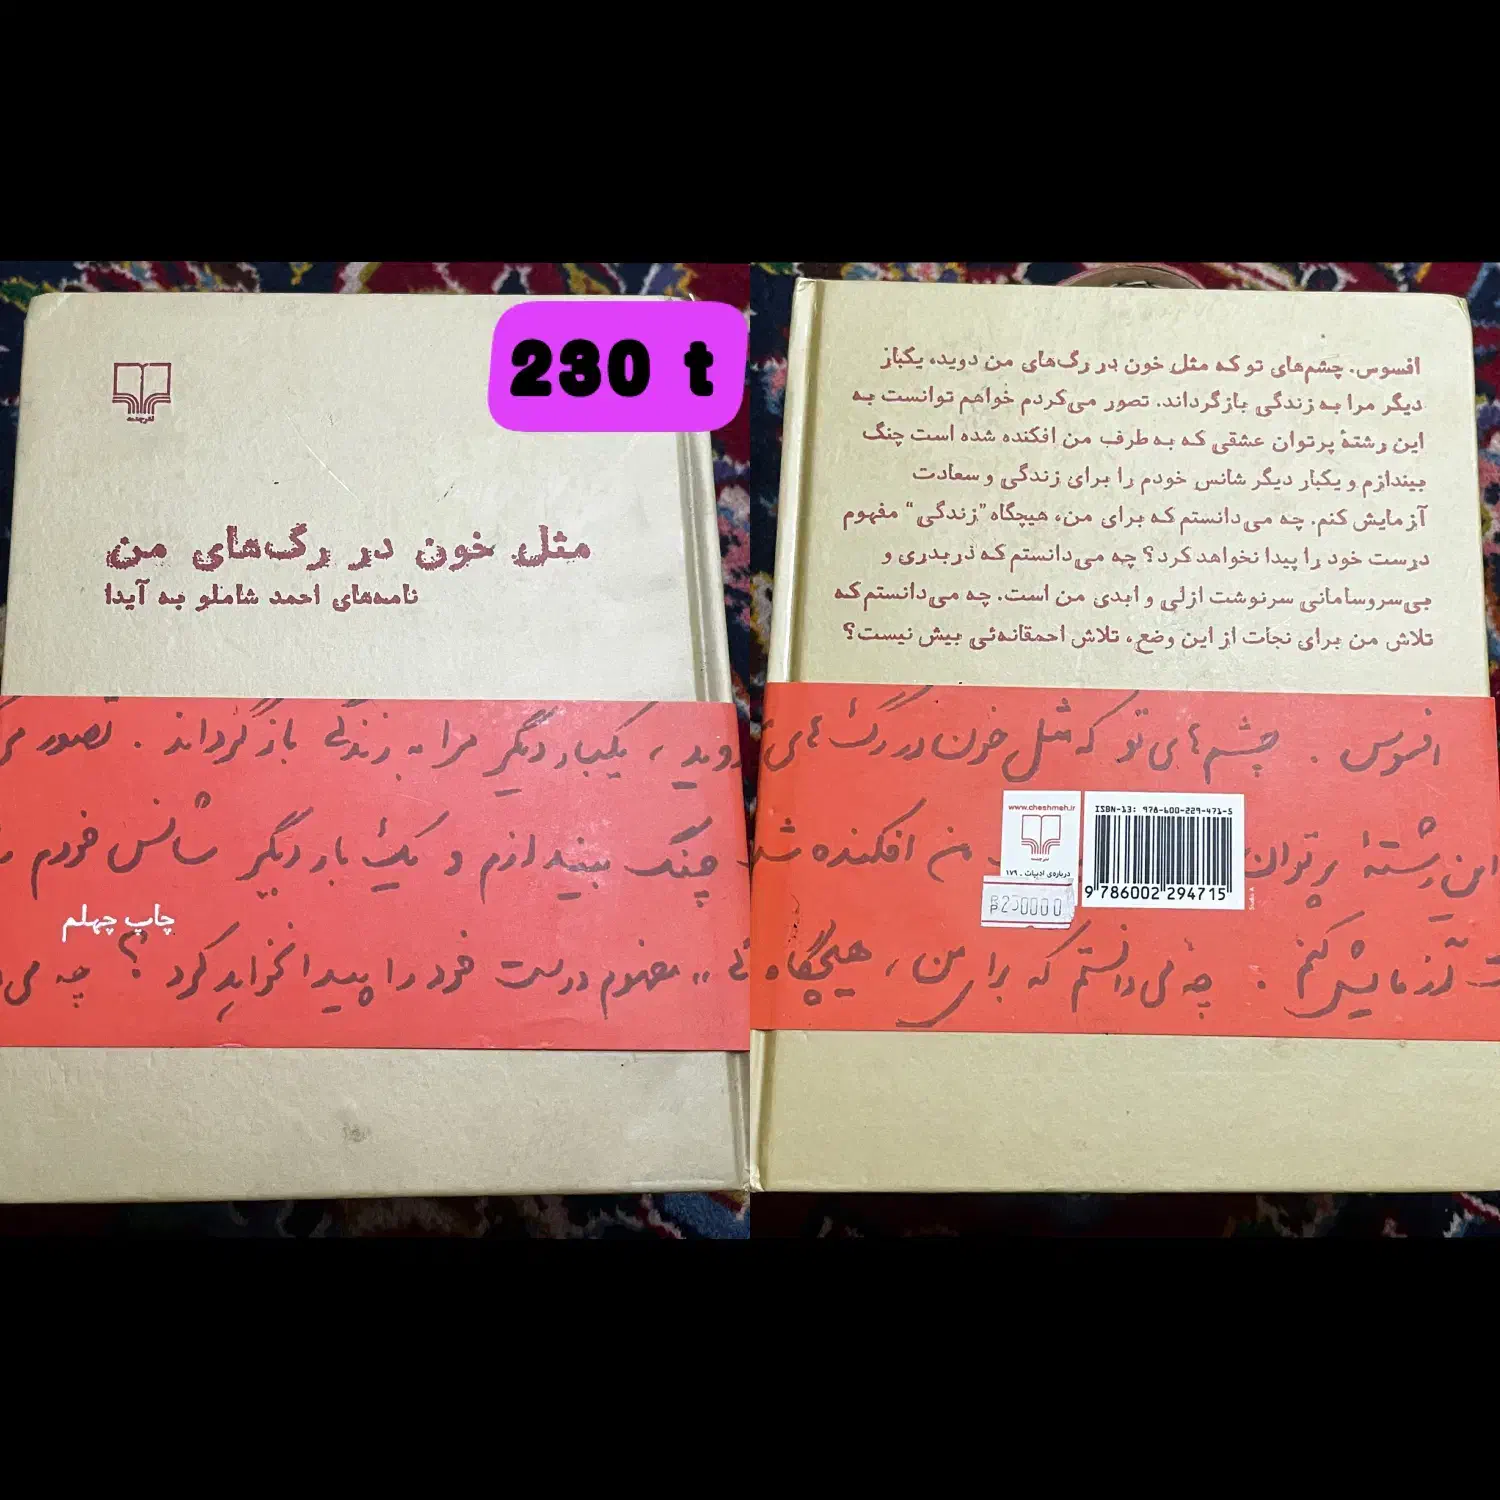 230 t
نشر چشمه
مثل خون در رگ‌های من
نامه‌های احمد شاملو به آیدا
دوید، یکبار دیگر مرا به زندگی بازگرداند. تصور می
چنگ بیندازم و یک بار دیگر شانس خودم
چاپ چهلم
مفهوم درست خود را پیدا نخواهد کرد؟ چه می
افسوس. چشم‌های تو که مثل خون در رگ‌های من دوید، یکبار
دیگر مرا به زندگی بازگرداند. تصور می‌کردم خواهم توانست به
این رشتهٔ پرتوان عشقی که به طرف من افکنده شده است چنگ
بیندازم و یکبار دیگر شانس خودم را برای زندگی و سعادت
آزمایش کنم. چه می‌دانستم که برای من، هیچگاه "زندگی" مفهوم
درست خود را پیدا نخواهد کرد؟ چه می‌دانستم که دربدری و
بی‌سروسامانی سرنوشت ازلی و ابدی من است. چه می‌دانستم که
تلاش من برای نجات از این وضع، تلاش احمقانه‌ئی بیش نیست؟
افسوس. چشم‌های تو که مثل خون در رگ‌های
www.cheshmeh.ir
نشر چشمه
درباره‌ی ادبیات ـ ۱۷۹
ISBN-13: 978-600-229-471-5
9 786002 294715
Studio A
230000
این رشتهٔ پرتوان من افکنده شد
آزمایش کنم. چه می‌دانستم که برای من، هیچگاه